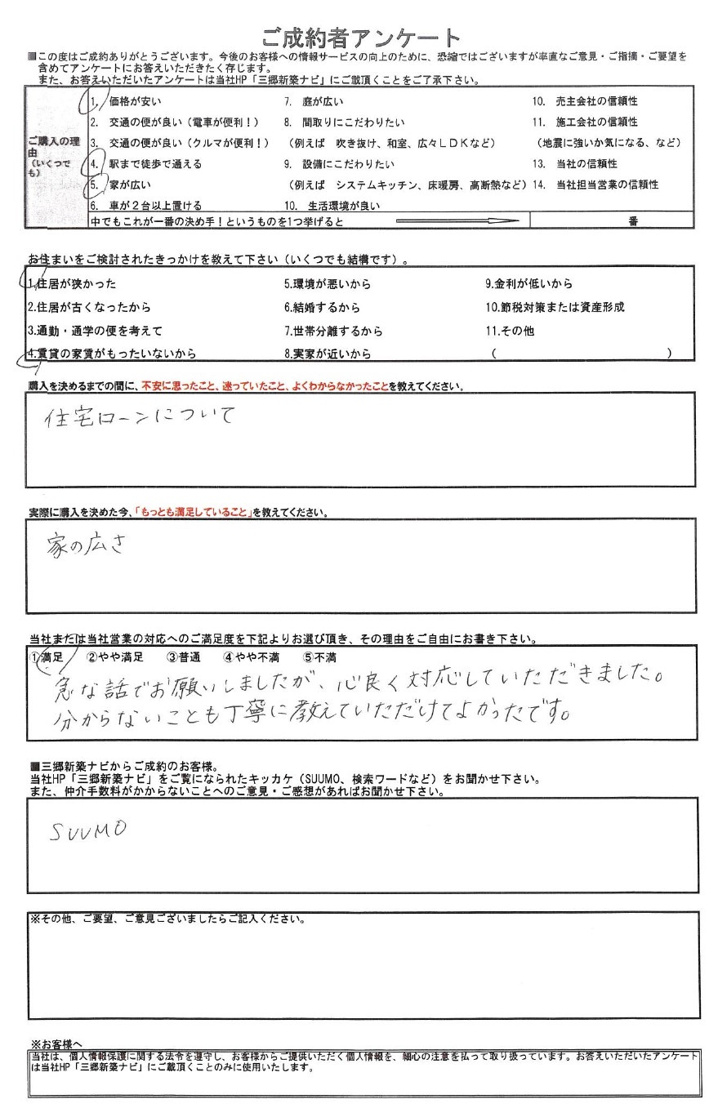 ご成約者アンケート
■この度はご成約ありがとうございます。今後のお客様への情報サービスの向上のために、恐縮ではございますが率直なご意見・ご指摘・ご要望を
含めてアンケートにお答えいただきたく存じます。
また、お答えいただいたアンケートは当社HP「三郷新築ナビ」にご載頂くことをご了承下さい。
ご購入の理由
(いくつでも)
1. 価格が安い
2. 交通の便が良い(電車が便利!)
3. 交通の便が良い(クルマが便利!)
4. 駅まで徒歩で通える
5. 家が広い
6. 車が2台以上置ける
7. 庭が広い
8. 間取りにこだわりたい
(例えば 吹き抜け、和室、広々LDKなど)
9. 設備にこだわりたい
(例えば システムキッチン、床暖房、高断熱など)
10. 生活環境が良い
10. 売主会社の信頼性
11. 施工会社の信頼性
(地震に強いか気になる、など)
13. 当社の信頼性
14. 当社担当営業の信頼性
中でもこれが一番の決め手!というものを1つ挙げると
番
お住まいをご検討されたきっかけを教えて下さい(いくつでも結構です)。
1.住居が狭かった
2.住居が古くなったから
3.通勤・通学の便を考えて
4.賃貸の家賃がもったいないから
5.環境が悪いから
6.結婚するから
7.世帯分離するから
8.実家が近いから
9.金利が低いから
10.節税対策または資産形成
11.その他
( )
購入を決めるまでの間に、不安に思ったこと、迷っていたこと、よくわからなかったことを教えてください。
住宅ローンについて
実際に購入を決めた今、「もっとも満足していること」を教えてください。
家の広さ
当社または当社営業の対応へのご満足度を下記よりお選び頂き、その理由をご自由にお書き下さい。
①満足 ②やや満足 ③普通 ④やや不満 ⑤不満
急な話でお願いしましたが、心良く対応していただきました。
分からないことも丁寧に教えていただけてよかったです。
■三郷新築ナビからご成約のお客様。
当社HP「三郷新築ナビ」をご覧になられたキッカケ(SUUMO、検索ワードなど)をお聞かせ下さい。
また、仲介手数料がかからないことへのご意見・ご感想があればお聞かせ下さい。
SUUMO
※その他、ご要望、ご意見ございましたらご記入ください。
※お客様へ
当社は、個人情報保護に関する法令を遵守し、お客様からご提供いただく個人情報を、細心の注意を払って取り扱っています。お答えいただいたアンケート
は当社HP「三郷新築ナビ」にご載頂くことのみに使用いたします。